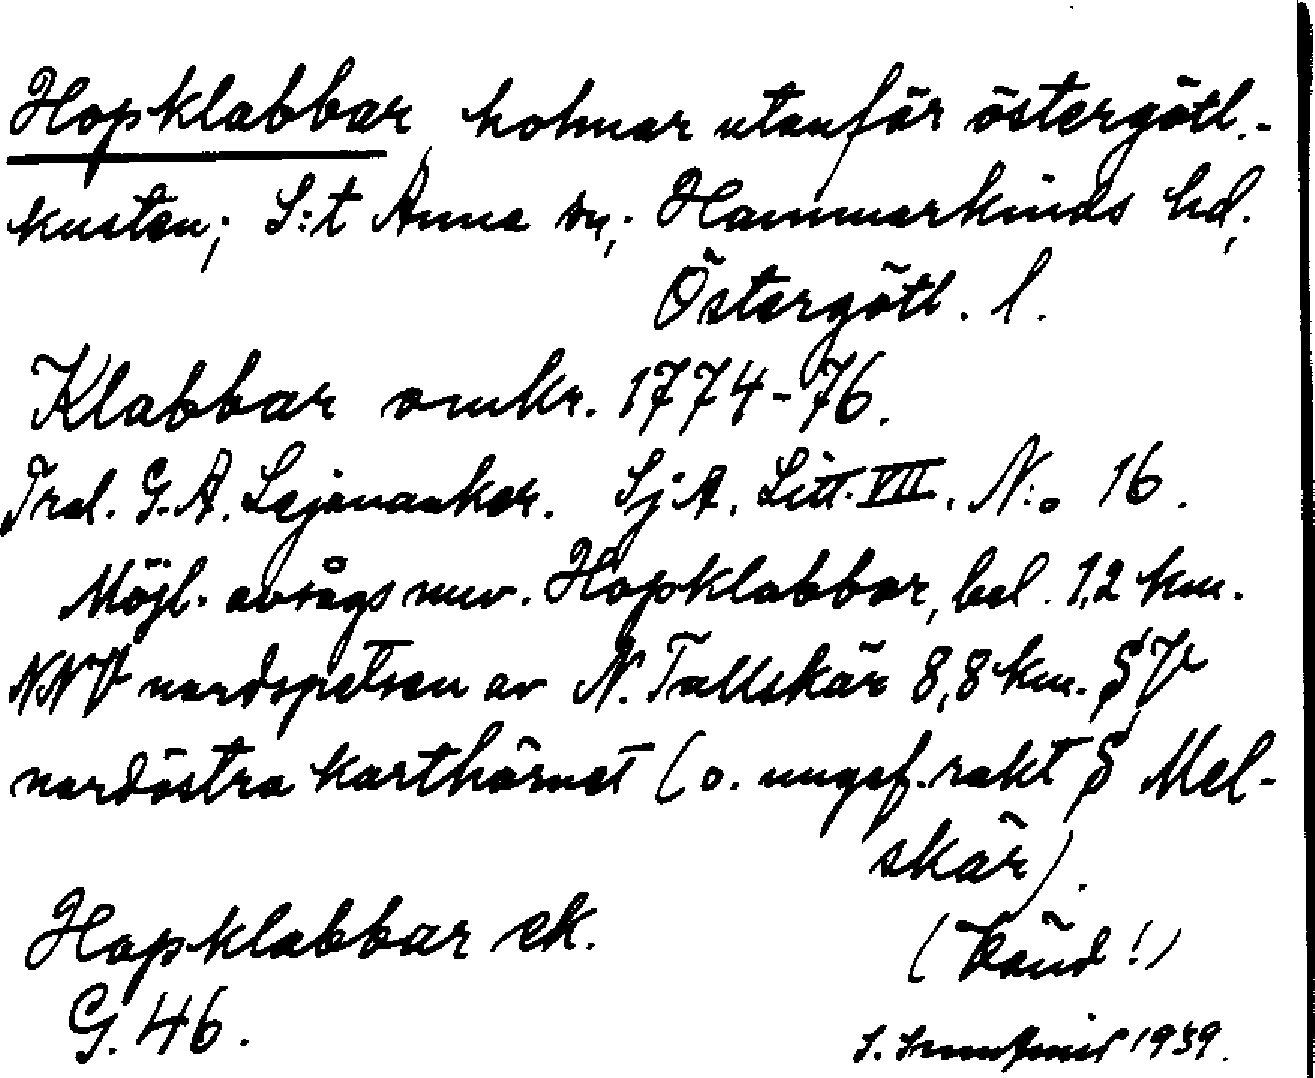 Hopklabbar, holmar utanför östergötl.-
kusten; S:t Anna sn; Hammarkinds hd,
Östergötl. l.
Klabbar omkr. 1774-76.
Trol. G. A. Lejonanker. SjA. Litt. VII. N:o 16.
Möjl. avsågs nuv. Hopklabbar, bel. 1,2 km.
NNV nordspetsen av N. Tallskär 8,8 km. SV
nordöstra karthörnet (o. ungef. rakt S Mel-
skär).
Hopklabbar ek. (Känd!)
G. 46. 1939.